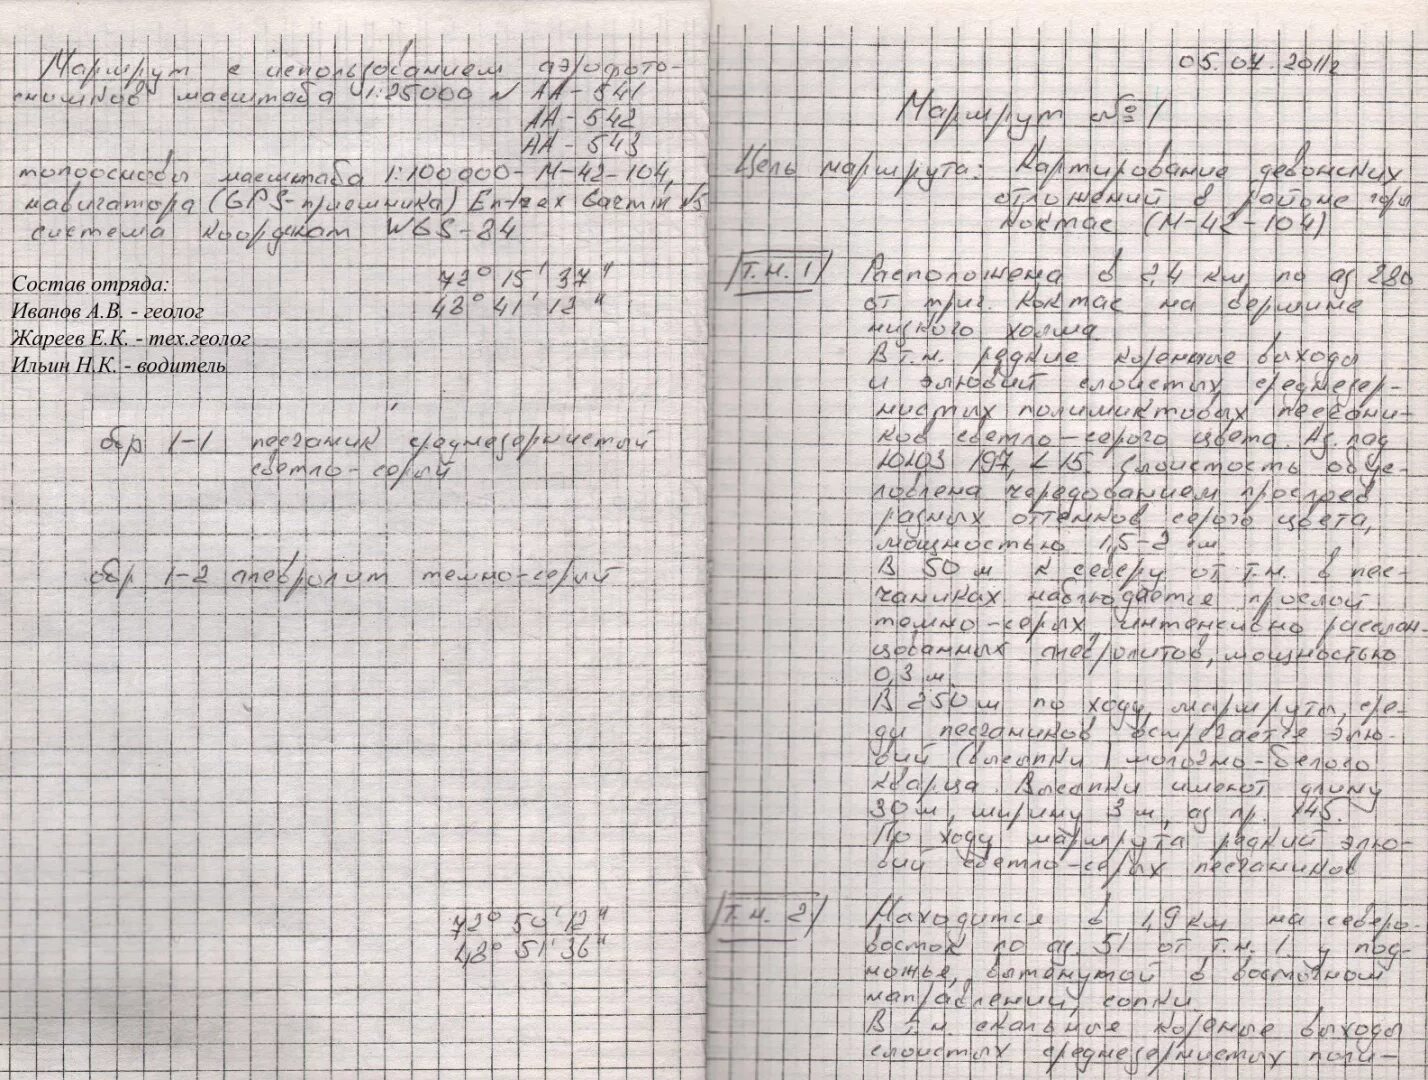 Маршрут с использованием аэрофото-
снимков масштаба 1:25000 № АА-541
АА-542
АА-543
топоосновы масштаба 1:100000-М-42-104,
навигатора (GPS-приемника)
система координат WGS-84
72° 15' 37"
48° 41' 12"
Состав отряда:
Иванов А.В. - геолог
Жареев Е.К. - тех.геолог
Ильин Н.К. - водитель
обр 1-1 песчаник среднезернистый
светло-серый
обр 1-2 алевролит темно-серый
72° 50' 12"
48° 51' 36"
05.07.2011г
Маршрут № 1
Цель маршрута: Картирование девонских
отложений в районе горы
Коктас (М-42-104)
Т.н. 1 Расположена в 2,4 км по аз 280
от триг. Коктас на вершине
низкого холма.
В т.н. редкие коренные выходы
и элювий слоистых среднезер-
нистых полимиктовых песчани-
ков светло-серого цвета. Аз. пад
197, ∠15. Слоистость обус-
ловлена чередованием прослоев
разных оттенков серого цвета,
мощностью 1,5-2 см.
В 50 м к северу от т.н. в пес-
чаниках наблюдается прослой
темно-серых, интенсивно расслан-
цованных алевролитов, мощностью
0,3 м.
В 250 м по ходу маршруты, сре-
ди песчаников встречается элю-
вий (высыпки) молочно-белого
кварца. Высыпки имеют длину
30 м, ширину 3 м, аз пр. 145.
По ходу маршрута редкий элю-
вий светло-серых песчаников
Т.н. 2 Находится в 1,9 км на северо-
восток по аз. 51 от т.н. 1. у под-
ножья, вытянутой в восточном
направлении, сопки
В т.н. скальные коренные выходы
слоистых среднезернистых поли-